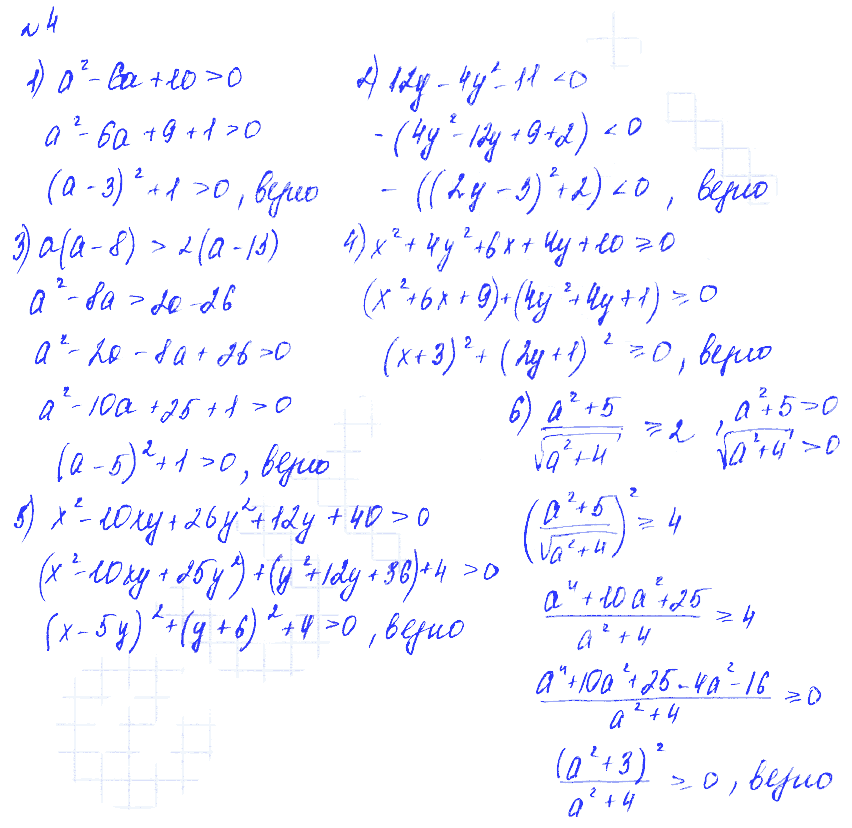 №4
1) a² - 6a + 10 > 0
a² - 6a + 9 + 1 > 0
(a - 3)² + 1 > 0, верно
2) 12y - 4y² - 11 < 0
-(4y² - 12y + 9 + 2) < 0
- ((2y - 3)² + 2) < 0, верно
3) a(a - 8) > 2(a - 13)
a² - 8a > 2a - 26
a² - 2a - 8a + 26 > 0
a² - 10a + 25 + 1 > 0
(a - 5)² + 1 > 0, верно
4) x² + 4y² + 6x + 4y + 10 ≥ 0
(x² + 6x + 9) + (4y² + 4y + 1) ≥ 0
(x + 3)² + (2y + 1)² ≥ 0, верно
5) x² - 10xy + 26y² + 12y + 40 > 0
(x² - 10xy + 25y²) + (y² + 12y + 36) + 4 > 0
(x - 5y)² + (y + 6)² + 4 > 0, верно
6) (a² + 5)/√(a² + 4) ≥ 2, a² + 5 > 0
√(a² + 4) > 0
((a² + 5)/√(a² + 4))² ≥ 4
(a⁴ + 10a² + 25)/(a² + 4) ≥ 4
(a⁴ + 10a² + 25 - 4a² - 16)/(a² + 4) ≥ 0
(a² + 3)²/(a² + 4) ≥ 0, верно